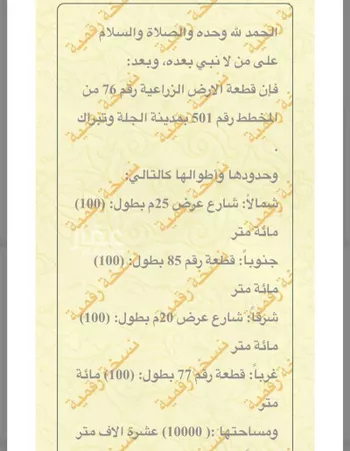 الحمد لله وحده والصلاة والسلام
على من لا نبي بعده، وبعد:
فإن قطعة الارض الزراعية رقم 76 من
المخطط رقم 501 بمدينة الجلة وتبراك
.
وحدودها واطوالها كالتالي:
شمالاً: شارع عرض 25م بطول: (100)
مائة متر
جنوباً: قطعة رقم 85 بطول: (100)
مائة متر
شرقاً: شارع عرض 20م بطول: (100)
مائة متر
غرباً: قطعة رقم 77 بطول: (100) مائة
متر
ومساحتها :( 10000) عشرة الاف متر
نسخة رقمية
عقار